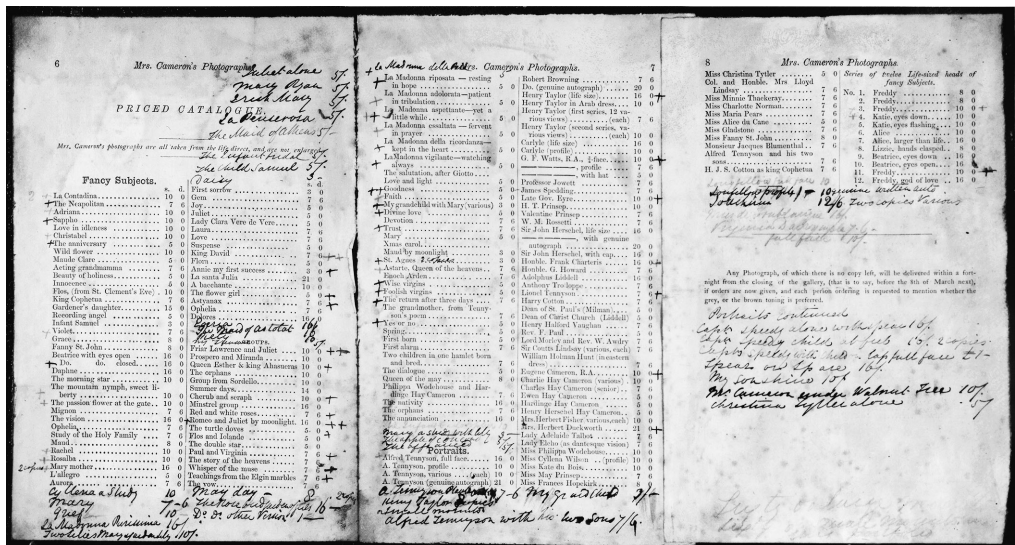 6
Mrs. Cameron's Photographs.
Juliet alone 5/-
Mary Ryan 5/-
Irish Mary 5/-
PRICED CATALOGUE.
La Penserosa 5/-
The Maid of Athens 5/-
Mrs. Cameron's photographs are all taken from the life direct, and are not enlarged.
The Child Samuel
Daisy
Fancy Subjects.
s. d.
La Contadina 10 0
The Neapolitan 7 6
Adriana 10 0
Sappho 10 0
Love in idleness 10 0
Christabel 10 0
The anniversary 5 0
Wild flower 10 0
Maude Clare 5 0
Acting grandmamma 7 6
Beauty of holiness 5 0
Innocence 5 0
Flos, (from St. Clement's Eve) 10 0
King Cophetua 7 6
Gardener's daughter 15 0
Recording angel 5 0
Infant Samuel 5 0
Violet 7 6
Grace 8 0
Fanny St. John 8 0
Beatrice with eyes open 16 0
Do. do. closed 16 0
Daphne 16 0
The morning star 10 0
The mountain nymph, sweet liberty 10 0
The passion flower at the gate 10 0
Mignon 7 6
The vision 16 0
Ophelia 7 6
Study of the Holy Family 7 6
Maud 8 0
Rachel 10 0
Rosalba 10 0
Mary mother 16 0
L'allegro 5 0
Aurora 7 6
Cyllena a Study 10
Mary 7-6
Grief 10
La Madonna Purissima 16/-
First sorrow 5 0
Gem 7 6
Joy 5 0
Juliet 5 0
Lady Clara Vere de Vere 5 0
Laura 7 6
Love 5 0
Suspense 5 0
King David 7 6
Flora 7 6
Annie my first success 7 6
La santa Julia 21 0
A bacchante 10 0
The flower girl 5 0
Astyanax 7 6
Ophelia 7 6
Dolores 16 0
The Maid of Astolat 16/-
GROUPS.
Friar Lawrence and Juliet 7 6
Prospero and Miranda 7 6
Queen Esther & king Ahasuerus 10 0
The orphans 10 0
Group from Sordello 10 0
Summer days 14 0
Cherub and seraph 10 0
Minstrel group 16 0
Red and white roses 7 6
Romeo and Juliet by moonlight 16 0
The turtle doves 5 0
Flos and Iolande 5 0
The double star 5 0
Paul and Virginia 7 6
The story of the heavens 7 6
Whisper of the muse 10 0
Teachings from the Elgin marbles 7 6
The vow
May day
7
La Madonna della
Mrs. Cameron's Photographs.
La Madonna riposata — resting in hope 5 0
La Madonna adolorata—patient in tribulation 5 0
La Madonna aspettante—yet a little while 5 0
La Madonna esaltata — fervent in prayer 5 0
La Madonna della ricordanza—kept in the heart 5 0
La Madonna vigilante—watching always 5 0
The salutation, after Giotto 7 6
Love and light 5 0
Goodness 5 0
Faith 5 0
My grandchild with Mary (various) 10 0
Divine love 5 0
Devotion 7 6
Trust 5 0
Mary 5 0
Xmas carol 5 0
Maud by moonlight 5 0
St. Agnes
Astarte, Queen of the heavens 7 6
Enoch Arden 7 6
Wise virgins 5 0
Foolish virgins 5 0
The return after three days 7 6
The grandmother, from Tennyson's poem 7 6
Yes or no 5 0
Spring 5 0
First born 7 6
First alarm 7 6
Two children in one hamlet born and bred 7 6
The dialogue 5 0
Queen of the may 8 0
Philippa Wodehouse and Hardinge Hay Cameron 5 0
The nativity 16 0
The orphans 5 0
The annunciation 16 0
Portraits.
Alfred Tennyson, full face 16 0
A. Tennyson, profile 10 0
A. Tennyson, various (each) 10 0
A. Tennyson (genuine autograph) 21 0
Alfred Tennyson with his two Sons 7/6
Robert Browning 7 6
Do. (genuine autograph) 20 0
Henry Taylor (life size) 16 0
Henry Taylor in Arab dress 10 0
Henry Taylor (first series, 12 various views) (each) 7 6
Henry Taylor (second series, various views) (each) 10 0
Carlyle (life size) 16 0
Carlyle (profile) 10 0
G. F. Watts, R.A., ¾ face 10 0
——, profile 5 0
—— with hat 5 0
Professor Jowett 7 6
James Spedding 7 6
Late Gov. Eyre 10 0
H. T. Prinsep 10 0
Valentine Prinsep 7 6
W. M. Rossetti 7 6
Sir John Herschel, life size 16 0
——, with genuine autograph 20 0
Sir John Herschel, with cap 16 0
Honble. Frank Charteris 16 0
Honble. G. Howard 7 6
Adolphus Liddell 7 6
Anthony Trollope 7 6
Lionel Tennyson 7 6
Harry Cotton 7 6
Dean of St. Paul's (Milman) 5 0
Dean of Christ Church (Liddell) 5 0
Henry Halford Vaughan 7 6
Rev. F. Paul 7 6
Lord Morley and Rev. W. Audry 7 6
Sir Coutts Lindsay (various, each) 7 6
William Holman Hunt (in eastern dress) 7 6
Eugene Cameron, R.A. 7 6
Charlie Hay Cameron (various) 10 0
Charles Hay Cameron (senior) 7 6
Ewen Hay Cameron 5 0
Hardinge Hay Cameron 5 0
Henry Herschel Hay Cameron 5 0
Mrs. Herbert Fisher (various, each) 10 0
Mrs. Herbert Duckworth 21 0
Lady Adelaide Talbot 7 6
Lady Elcho (as dantesque vision) 7 6
Miss Philippa Wodehouse 10 0
Miss Cyllena Wilson (profile) 5 0
Miss Kate du Bois 10 0
Miss May Prinsep 7 6
Miss Frances Hopekirk 8 0
My grandchild
8
Mrs. Cameron's Photographs.
Miss Christina Tytler 5 0
Col. and Honble. Mrs Lloyd Lindsay 7 6
Miss Minnie Thackeray 7 6
Miss Charlotte Norman 7 6
Miss Maria Pears 7 6
Miss Alice du Cane 5 0
Miss Gladstone 7 6
Miss Fanny St. John 8 0
Monsieur Jacques Blumenthal 7 6
Alfred Tennyson and his two sons 7 6
H. J. S. Cotton as king Cophetua 7 6
Series of twelve Life-sized heads of fancy Subjects.
No. 1. Freddy 8 0
2. Freddy 8 0
3. Freddy 10 0
4. Katie, eyes down 10 0
5. Katie, eyes flashing 10 0
6. Alice 10 0
7. Alice, larger than life 16 0
8. Lizzie, hands clasped 8 0
9. Beatrice, eyes down 16 0
10. Beatrice, eyes open 16 0
11. Freddy 10 0
12. Freddy, god of love 16 0
Joachim 12/6 Two copies Various
Any Photograph, of which there is no copy left, will be delivered within a fortnight from the closing of the gallery, (that is to say, before the 8th of March next), if orders are now given, and each person ordering is requested to mention whether the grey, or the brown toning is preferred.
Portraits Continued
Captn Speedy alone with spear 16/-
Captn Speedy child at feet 15/- 2 copies
Spears or Spare 16/-
My Sonshine 10/-
Mr Cameron under Walnut Tree 10/-
Christina Tytler alone 5/